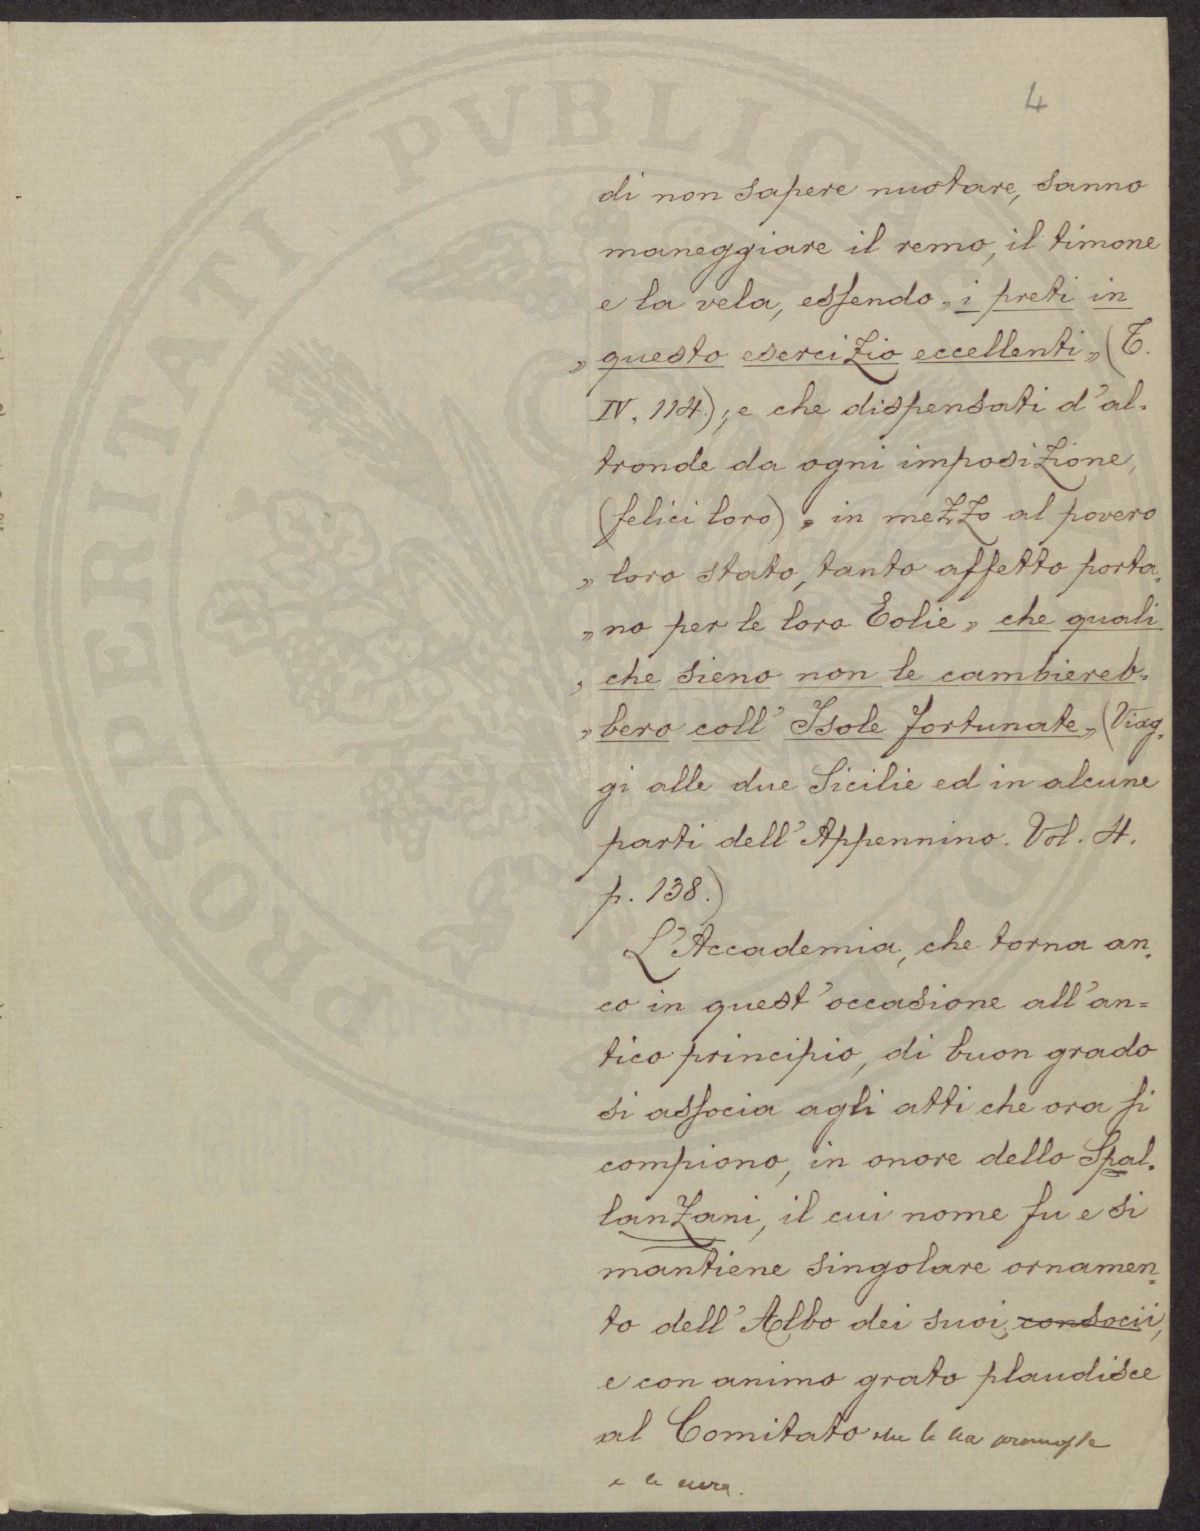 4
di non sapere nuotare, sanno
maneggiare il remo, il timone
e la vela, essendo „ i preti in
„ questo esercizio eccellenti „ (T.
IV. 114.), e che dispensati d'al-
tronde da ogni imposizione,
(felici loro) „ in mezzo al povero
„ loro stato, tanto affetto porta-
„ no per le loro Eolie „ che quali
„ che sieno non le cambiereb-
„ bero coll' Isole fortunate „ (Viag-
gi alle due Sicilie ed in alcune
parti dell'Appennino. Vol. 4.
p. 138.)
L'Accademia, che torna an-
co in quest'occasione all'an=
tico principio, di buon grado
si associa agli atti che ora si
compiono, in onore dello Spal-
lanzani, il cui nome fu e si
mantiene singolare ornamen-
to dell'Albo dei suoi consocii,
e con animo grato plaudisce
al Comitato che le ha promosse
e le cura.
PROSPERITATI PVBLICAE